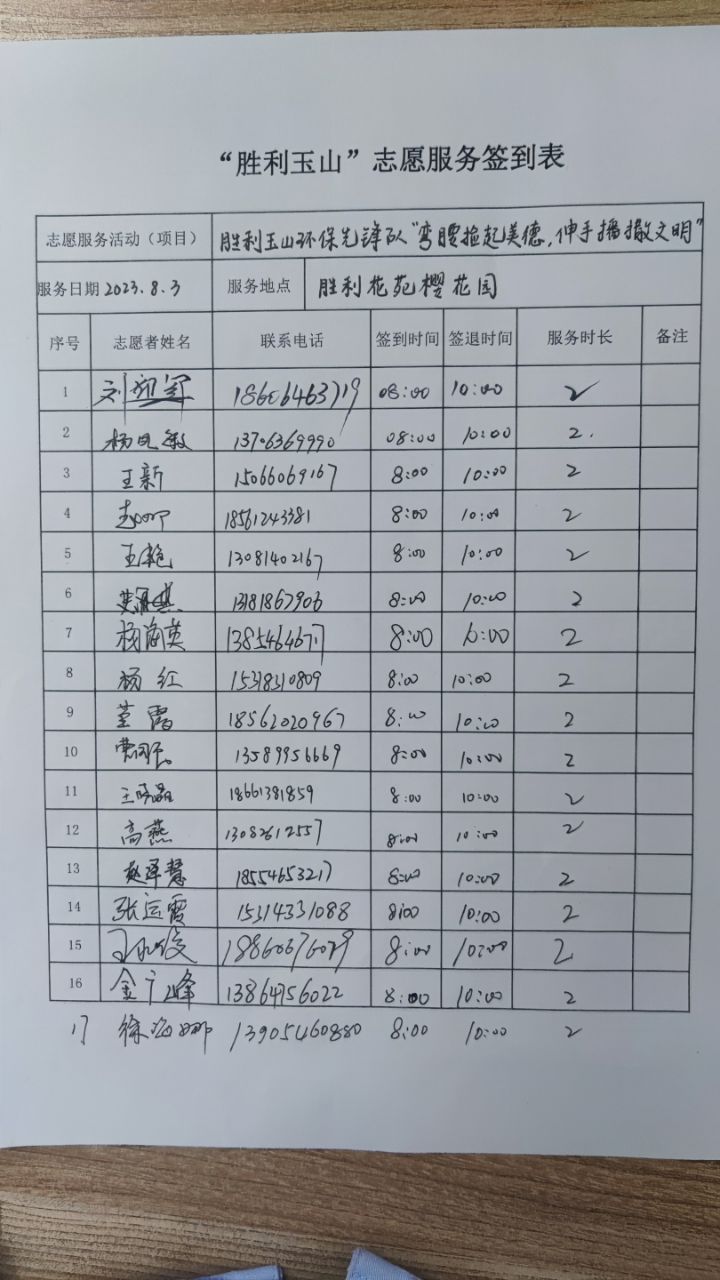 “胜利玉山”志愿服务签到表
志愿服务活动（项目） 胜利玉山环保先锋队“弯腰捡起美德，伸手播撒文明”
服务日期 2023.8.3 服务地点 胜利花苑樱花园
序号 志愿者姓名 联系电话 签到时间 签退时间 服务时长 备注
1 18606463719 08:00 10:00 2
2 13706369990 08:00 10:00 2.
3 王新 15066069167 8:00 10:00 2
4 18561243381 8:00 10:00 2
5 王艳 13081402167 8:00 10:00 2
6 13181867906 8:00 10:00 2
7 杨海英 8:00 10:00 2
8 杨红 15318310809 8:00 10:00 2
9 董霞 18562020967 8:00 10:00 2
10 13589956669 8:00 10:00 2
11 王晓晶 18661381859 8:00 10:00 2
12 高燕 13082612557 8:00 10:00 2
13 赵泽慧 18554653217 8:00 10:00 2
14 张运霞 15314331088 8:00 10:00 2
15 18860376029 8:00 10:00 2
16 金广峰 13864756022 8:00 10:00 2
17 徐海娜 13905460880 8:00 10:00 2